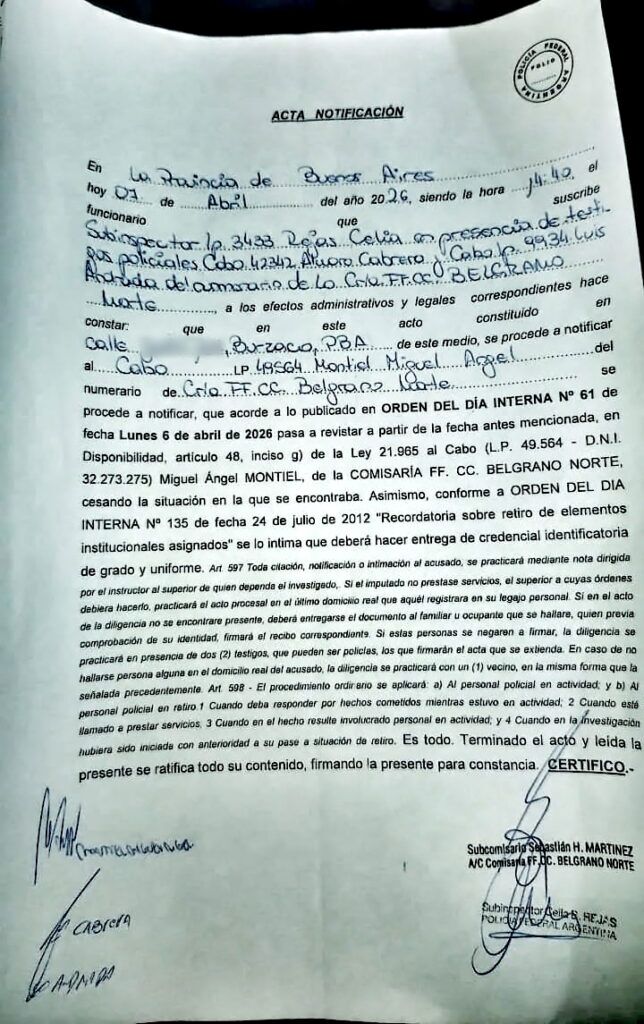 POLICIA FEDERAL ARGENTINA
FOLIO
ACTA NOTIFICACIÓN
En La Provincia de Buenos Aires
hoy 07 de Abril del año 2026, siendo la hora 14:40 el
funcionario que suscribe
Subinspector lp. 3433 Rojas Celia en presencia de testi-
gos policiales Cabo 42342 Alvaro Cabrera y Cabo lp. 9934 Luis
Andrada del numerario de La Cria. FF.CC. BELGRANO
Norte, a los efectos administrativos y legales correspondientes hace
constar: que en este acto constituido en
calle , Burzaco, PBA de este medio, se procede a notificar
al Cabo LP. 49564 Montiel Miguel Angel del
numerario de Cria FF.CC. Belgrano Norte se
procede a notificar, que acorde a lo publicado en ORDEN DEL DÍA INTERNA Nº 61 de
fecha Lunes 6 de abril de 2026 pasa a revistar a partir de la fecha antes mencionada, en
Disponibilidad, artículo 48, inciso g) de la Ley 21.965 al Cabo (L.P. 49.564 - D.N.I.
32.273.275) Miguel Ángel MONTIEL, de la COMISARÍA FF. CC. BELGRANO NORTE,
cesando la situación en la que se encontraba. Asimismo, conforme a ORDEN DEL DIA
INTERNA Nº 135 de fecha 24 de julio de 2012 "Recordatoria sobre retiro de elementos
institucionales asignados" se lo intima que deberá hacer entrega de credencial identificatoria
de grado y uniforme. Art. 597 Toda citación, notificación o intimación al acusado, se practicará mediante nota dirigida
por el instructor al superior de quien dependa el investigado,. Si el imputado no prestase servicios, el superior a cuyas órdenes
debiera hacerlo, practicará el acto procesal en el último domicilio real que aquél registrara en su legajo personal. Si en el acto
de la diligencia no se encontrare presente, deberá entregarse el documento al familiar u ocupante que se hallare, quien previa
comprobación de su identidad, firmará el recibo correspondiente. Si estas personas se negaren a firmar, la diligencia se
practicará en presencia de dos (2) testigos, que pueden ser policías, los que firmarán el acta que se extienda. En caso de no
hallarse persona alguna en el domicilio real del acusado, la diligencia se practicará con un (1) vecino, en la misma forma que la
señalada precedentemente. Art. 598 - El procedimiento ordinario se aplicará: a) Al personal policial en actividad; y b) Al
personal policial en retiro.1 Cuando deba responder por hechos cometidos mientras estuvo en actividad; 2 Cuando esté
llamado a prestar servicios; 3 Cuando en el hecho resulte involucrado personal en actividad; y 4 Cuando en la investigación
hubiera sido iniciada con anterioridad a su pase a situación de retiro. Es todo. Terminado el acto y leída la
presente se ratifica todo su contenido, firmando la presente para constancia. CERTIFICO.-
Subcomisario Sebastián H. MARTINEZ
A/C Comisaría FF.CC. BELGRANO NORTE
CABRERA
Subinspector Celia B. REJAS
POLICÍA FEDERAL ARGENTINA